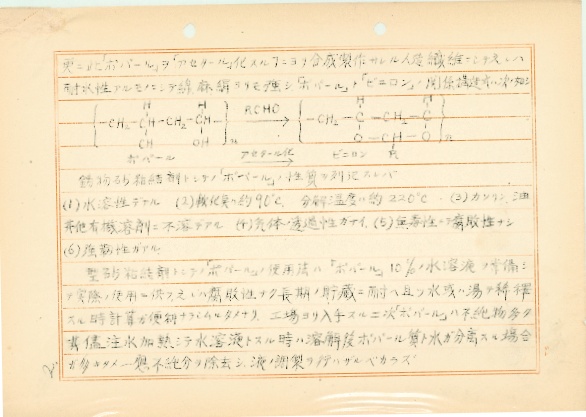 更ニコノ「ポバール」ヲ「アセタール」化スルニヨリ合成製作サレル人造繊維ニシテ
耐水性アルモノニシテ綿麻絹ヨリモ強シ「ポバール」ト「ビニロン」ノ関係構造ハ次ノ如シ
H H H H
-CH₂-C-CH₂-CH- RCHO -CH₂-C-CH₂-C-
OH OH n O-CH-O n
ポバール アセタール化 ビニロン R
鋳物砂粘結剤トシテノ「ポバール」ノ性質ヲ列記スレバ
(1) 水溶性デアル (2) 軟化点ハ約90℃、分解温度ハ約220℃ (3) ガソリン、油
其他有機溶剤ニ不溶デアル (4) 気体ノ透過性カナイ、(5) 無毒性ニテ腐敗性ナシ
(6) 強靭性ガアル、
型砂粘結剤トシテノ「ポバール」ノ使用法ハ「ポバール」10%ノ水溶液ヲ常備シ
実際ノ使用ニ供フ之レハ腐敗性ナク長期ノ貯蔵ニ耐ヘ且ツ水或ハ湯デ稀釋
スル時計算ガ便利ナラシムルタメナリ、工場ヨリ入手スル二次「ポバール」ハ不純物多ク
其儘注水加熱シテ水溶液トスル時ハ溶解後ポバール質ト水ガ分離スル場合
ガ多キタメ一應不純分ヲ除去シ、液ノ調製ヲ行ハザルベカラズ
2.